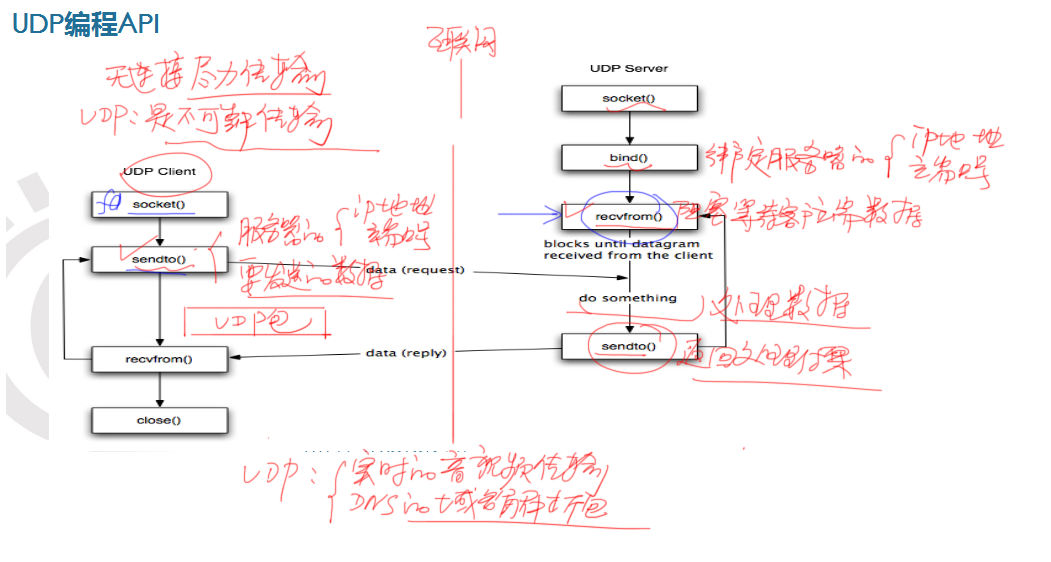 UDP编程API
互联网
无连接尽力传输
UDP:是不可靠传输
UDP Client
socket()
服务器的{ip地址
端口号
sendto()
要发送的数据
UDP包
data (request)
recvfrom()
data (reply)
close()
UDP Server
socket()
bind()
绑定服务器的{ip地址
端口号
recvfrom()
阻塞等待客户端数据
blocks until datagram
received from the client
do something
处理数据
sendto()
返回处理结果
UDP:{实时的音视频传输
DNS的域名解析包